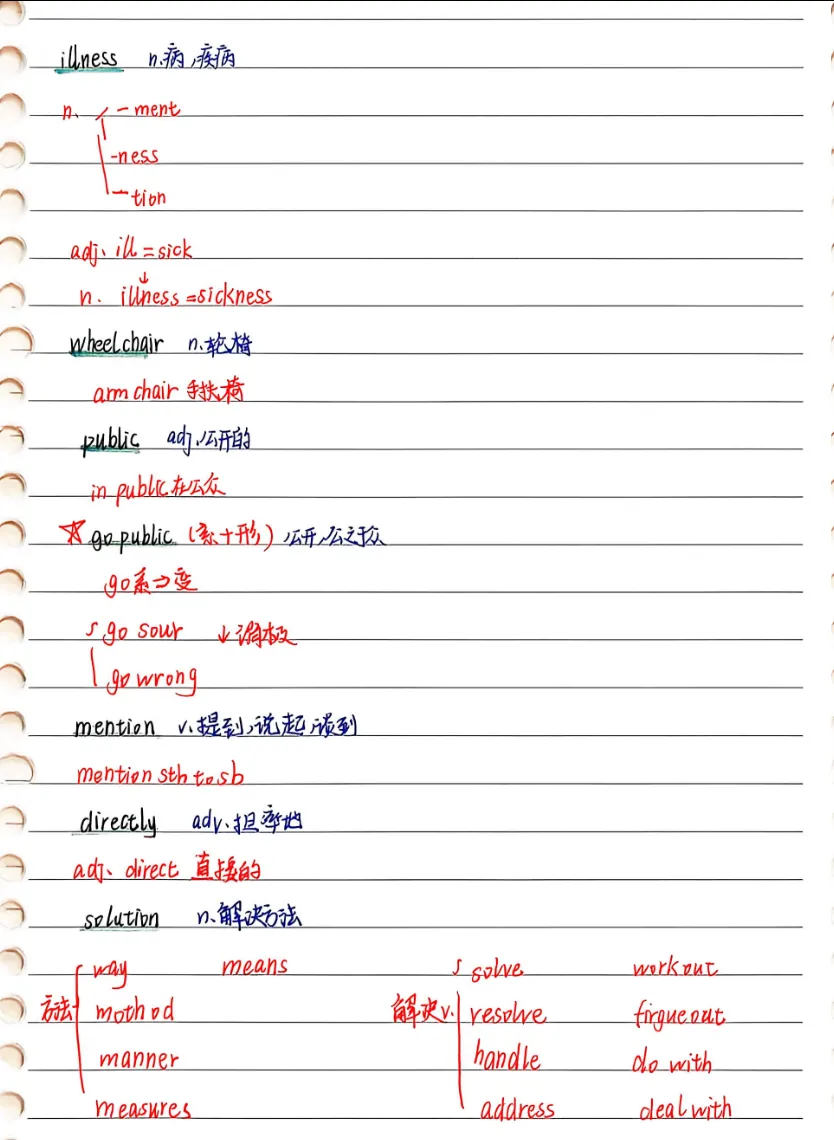 illness n.病,疾病
n. -ment
-ness
-tion
adj. ill=sick
↓
n. illness=sickness
wheelchair n.轮椅
armchair 手扶椅
public adj.公开的
in public在公众
☆ go public (系+形) 公开,公之于众
go系→变
go sour ↓消极
go wrong
mention v.提到,说起,谈到
mention sth to sb
directly adv.担率地
adj. direct 直接的
solution n.解决方法
方法 way means 解决v. solve work out
mothod resolve firgue out
manner handle do with
measures address deal with